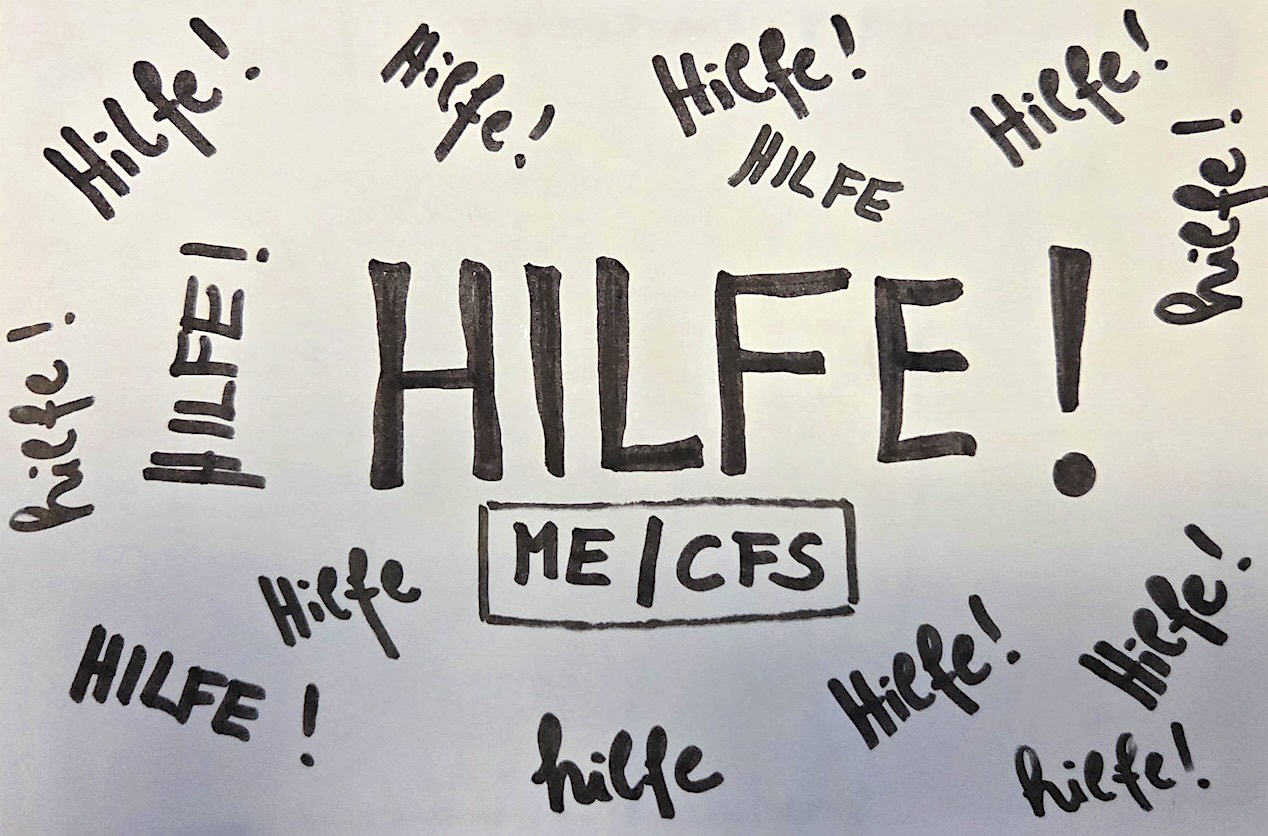 Hilfe!
Hilfe!
Hilfe!
Hilfe!
HILFE
hilfe!
HILFE!
HILFE!
hilfe!
ME/CFS
Hilfe
HILFE!
Hilfe!
Hilfe!
hilfe
hilfe!